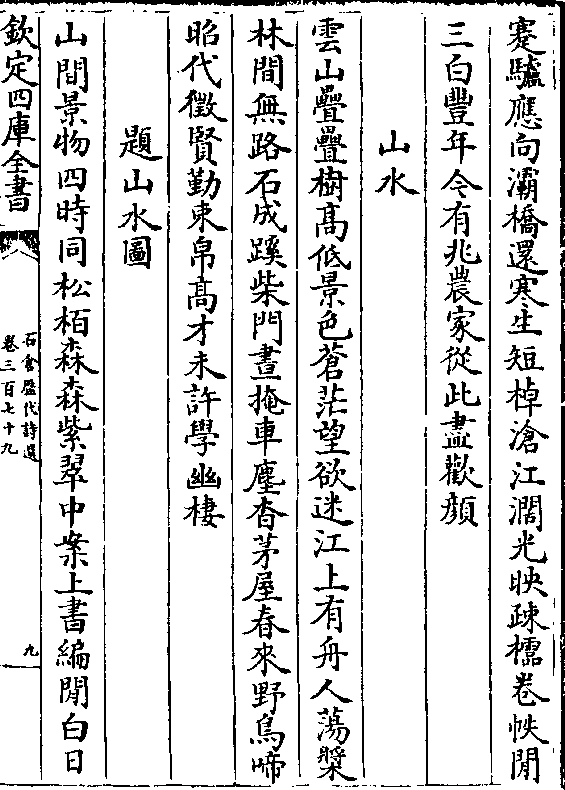 蹇驢應向灞橋還寒生短棹滄江濶光映疎櫺卷帙閒
三白豐年今有兆農家從此盡歡顔
山水
雲山疊疊樹髙低景色蒼茫望欲迷江上有舟人蕩槳
林間無路石成蹊柴門晝掩車塵杳茅屋春來野鳥啼
昭代徵賢勤束帛髙才未許學幽棲
題山水圖
山間景物四時同松栢森森紫翠中案上書編閒白日
欽定四庫全書
石倉歴代詩選
卷三百七十九
九